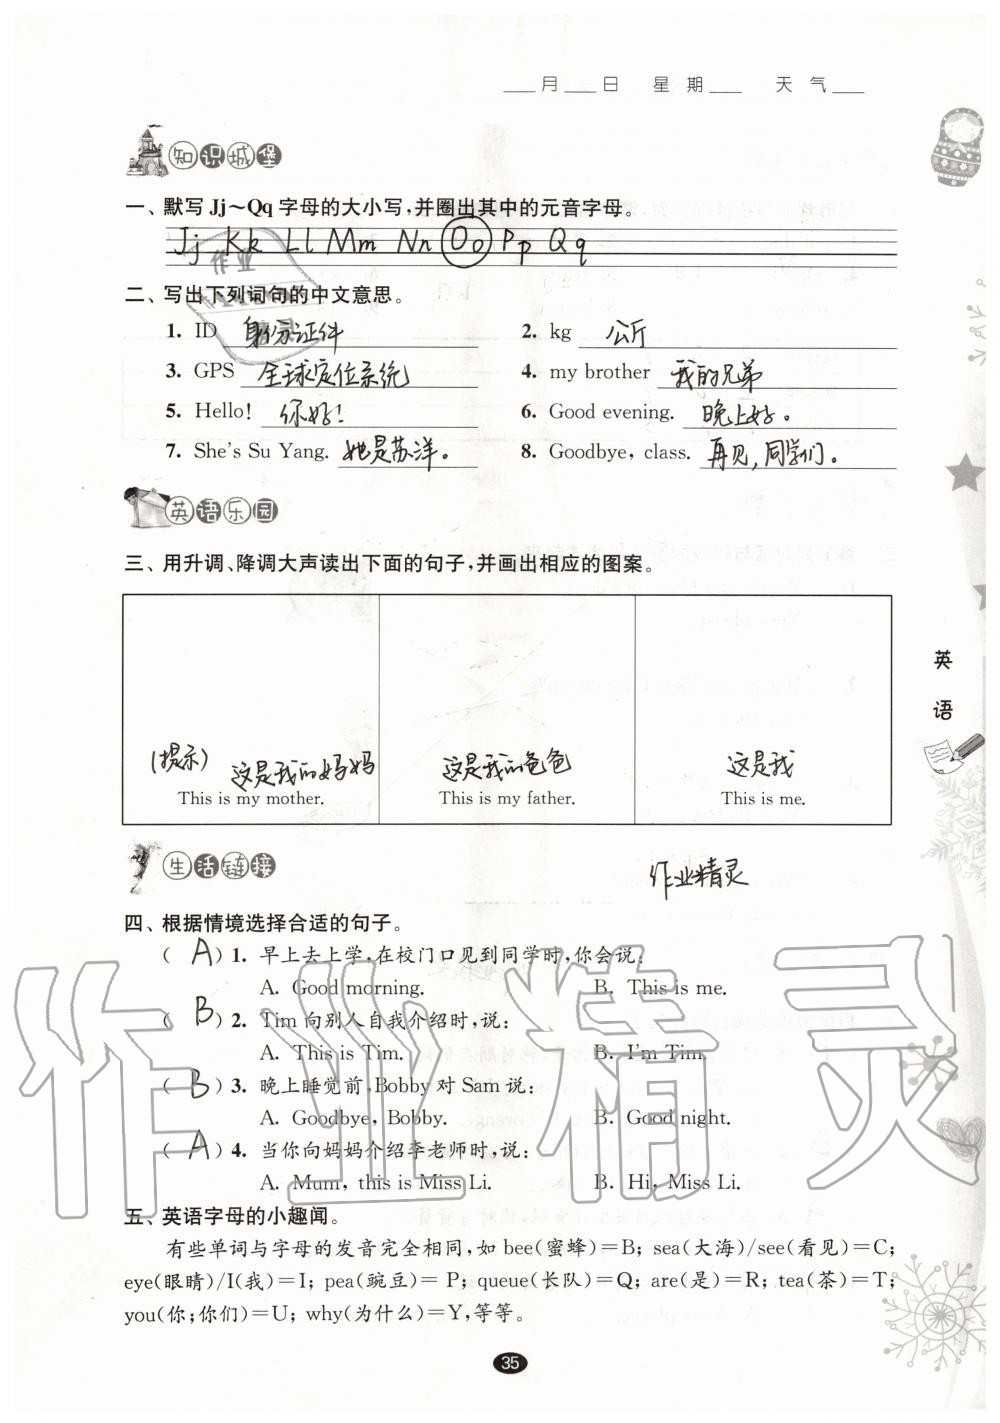 ___月___日 星 期___ 天 气___
知识城堡
一、默写 Jj~Qq 字母的大小写,并圈出其中的元音字母。
Jj Kk Ll Mm Nn Oo Pp Qq
作业
二、写出下列词句的中文意思。
1. ID 身份证件 2. kg 公斤
3. GPS 全球定位系统 4. my brother 我的兄弟
5. Hello! 你好! 6. Good evening. 晚上好。
7. She's Su Yang. 她是苏洋。 8. Goodbye, class. 再见,同学们。
英语乐园
三、用升调、降调大声读出下面的句子,并画出相应的图案。
(提示) 这是我的妈妈 这是我的爸爸 这是我
This is my mother. This is my father. This is me.
英语
生活链接
作业精灵
四、根据情境选择合适的句子。
( A ) 1. 早上去上学,在校门口见到同学时,你会说:
A. Good morning. B. This is me.
( B ) 2. Tim 向别人自我介绍时,说:
A. This is Tim. B. I'm Tim.
( B ) 3. 晚上睡觉前,Bobby 对 Sam 说:
A. Goodbye, Bobby. B. Good night.
( A ) 4. 当你向妈妈介绍李老师时,说:
A. Mum, this is Miss Li. B. Hi, Miss Li.
作业精灵
五、英语字母的小趣闻。
有些单词与字母的发音完全相同,如 bee(蜜蜂)=B; sea(大海)/see(看见)=C;
eye(眼睛)/I(我)=I; pea(豌豆)= P; queue(长队)=Q; are(是)=R; tea(茶)=T;
you(你;你们)=U; why(为什么)=Y,等等。
35